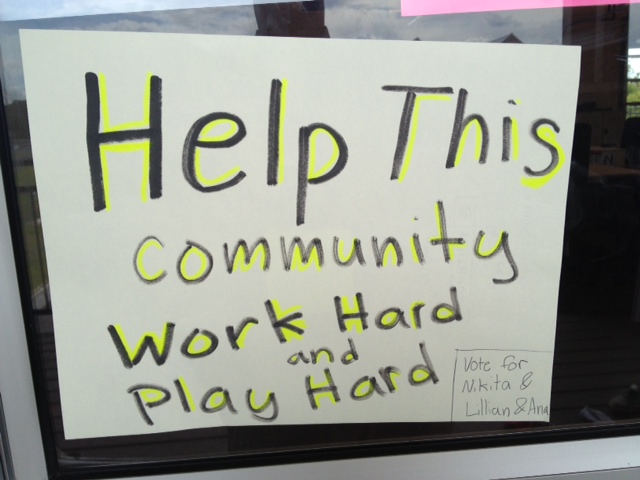 Help This
community
Work Hard
and
Play Hard
Vote for
Nikita &
Lillian & Ana